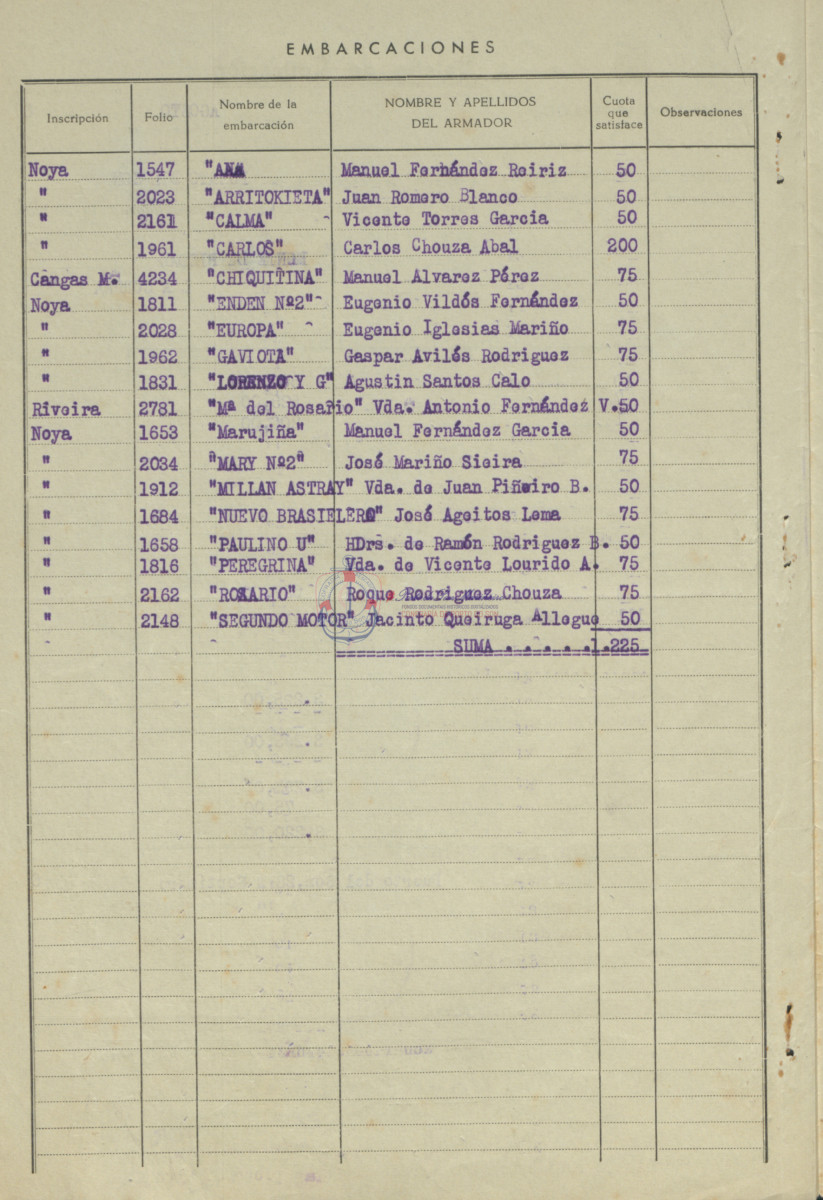 EMBARCACIONES
Inscripción Folio Nombre de la embarcación NOMBRE Y APELLIDOS DEL ARMADOR Cuota que satisface Observaciones
Noya 1547 "ANA Manuel Fernández Reiriz 50
" 2023 "ARRITOKIETA" Juan Romero Blanco 50
" 2161 "CALMA" Vicente Torres Garcia 50
" 1961 "CARLOS" Carlos Chouza Abal 200
Cangas M. 4234 "CHIQUITINA" Manuel Alvarez Pérez 75
Noya 1811 "ENDEN Nº2" Eugenio Vildós Fernández 50
" 2028 "EUROPA" Eugenio Iglesias Mariño 75
" 1962 "GAVIOTA" Gaspar Avilés Rodriguez 75
" 1831 "LORENZO Y G" Agustin Santos Calo 50
Riveira 2781 "Mª del Rosario" Vda. Antonio Fernández V. 50
Noya 1653 "Marujiña" Manuel Fernández Garcia 50
" 2034 "MARY Nº2" José Mariño Sieira 75
" 1912 "MILLAN ASTRAY" Vda. de Juan Piñeiro B. 50
" 1684 "NUEVO BRASIELERO" José Ageitos Lema 75
" 1658 "PAULINO U" HDrs. de Ramón Rodriguez B. 50
" 1816 "PEREGRINA" Vda. de Vicente Lourido A. 75
" 2162 "ROSARIO" Roque Rodriguez Chouza 75
" 2148 "SEGUNDO MOTOR" Jacinto Queiruga Allegue 50
SUMA . . . . . 1.225